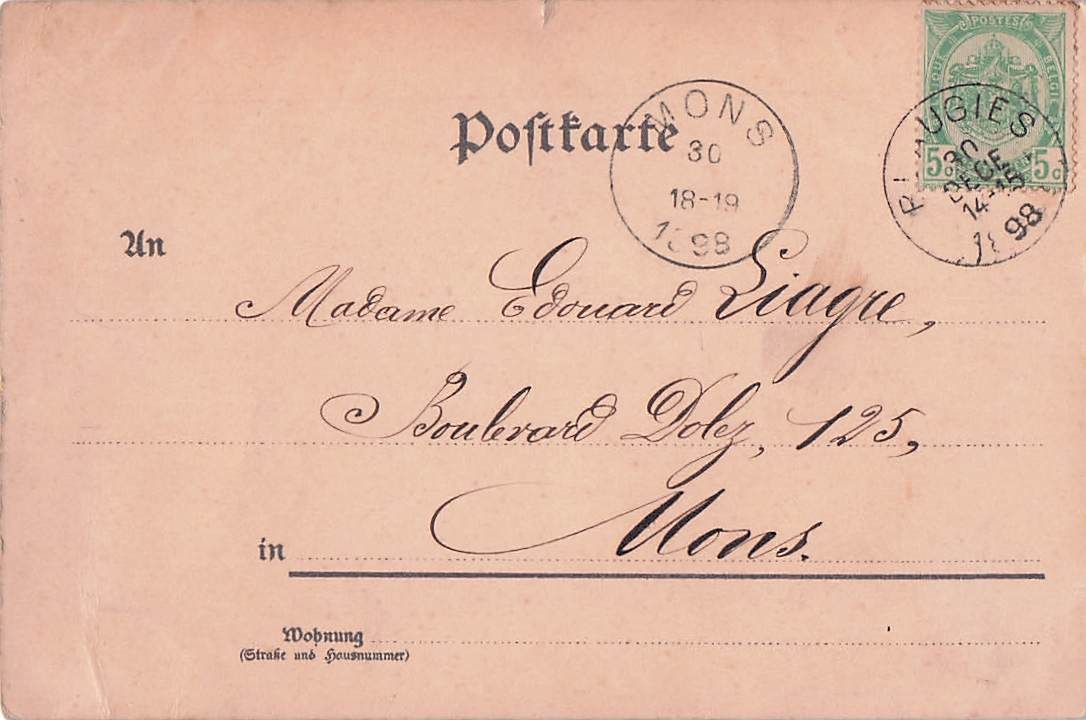 POSTES
BELGIE
5c 5c
Postkarte
MONS
30
18-19
1898
BLAUGIES
30
DECE
14-15
1898
An
Madame Edouard Liagre,
Boulevard Dolez, 125,
in Mons.
Wohnung
(Straße und Hausnummer)